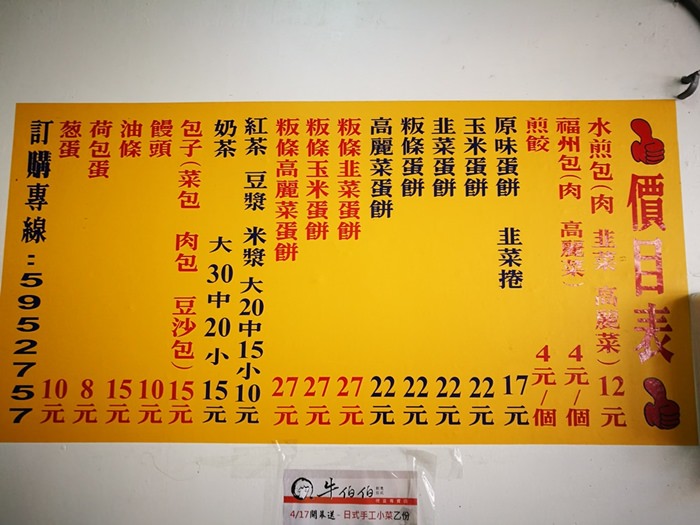 價目表
水煎包(肉 韭菜 高麗菜)12元
福州包(肉 高麗菜)4元/個
煎餃 4元/個
原味蛋餅 韭菜捲 17元
玉米蛋餅 22元
韭菜蛋餅 22元
粄條蛋餅 22元
高麗菜蛋餅 22元
粄條韭菜蛋餅 27元
粄條玉米蛋餅 27元
粄條高麗菜蛋餅 27元
紅茶 豆漿 米漿 大20中15小10元
奶茶 大30中20小15元
包子(菜包 肉包 豆沙包)15元
饅頭 10元
油條 15元
荷包蛋 8元
葱蛋 10元
訂購專線:5952757
牛伯伯
4/17開幕送-日式手工小菜乙份